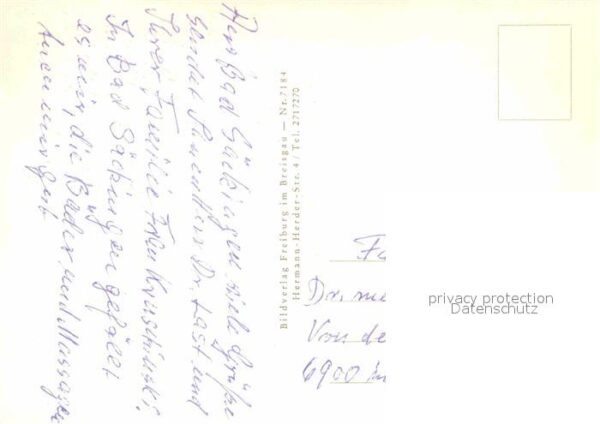 Aus Bad Säckingen viele Grüße
sendet Ihnen Herr Dr. Last und
Ihrer Familie Frau
In Bad Säckingen gefällt
es mir, die Bäder und Massagen
tuen mir gut.
Bildverlag Freiburg im Breisgau — Nr. 7184
Hermann-Herder-Str. 4 / Tel. 2717270
Fa
Dr. me
Von de
6900
privacy protection
Datenschutz